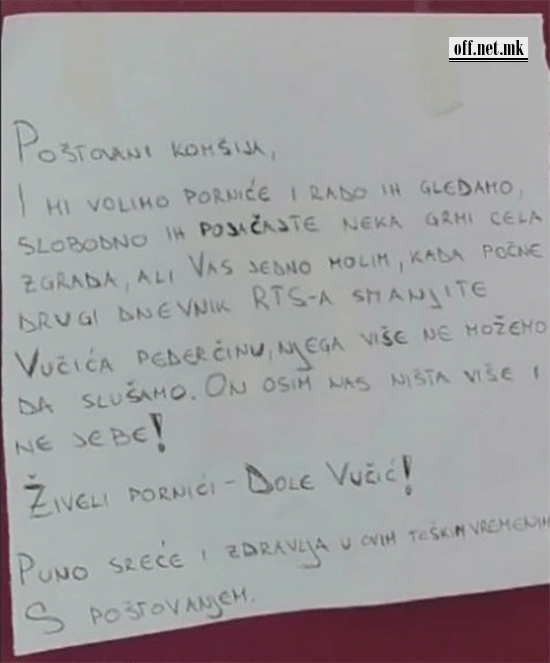 off.net.mk
POŠTOVANI KOMŠIJA,
I MI VOLIMO PORNIĆE I RADO IH GLEDAMO,
SLOBODNO IH POJAČAJTE NEKA GRMI CELA
ZGRADA, ALI VAS JEDNO MOLIM, KADA POČNE
DRUGI DNEVNIK RTS-A SMANJITE
VUČIĆA PEDERČINU, NJEGA VIŠE NE MOŽEMO
DA SLUŠAMO. ON OSIM NAS NIŠTA VIŠE I
NE JEBE!
ŽIVELI PORNIĆI - DOLE VUČIĆ!
PUNO SREĆE I ZDRAVLJA U OVIM TEŠKIM VREMENIM
S POŠTOVANJEM.